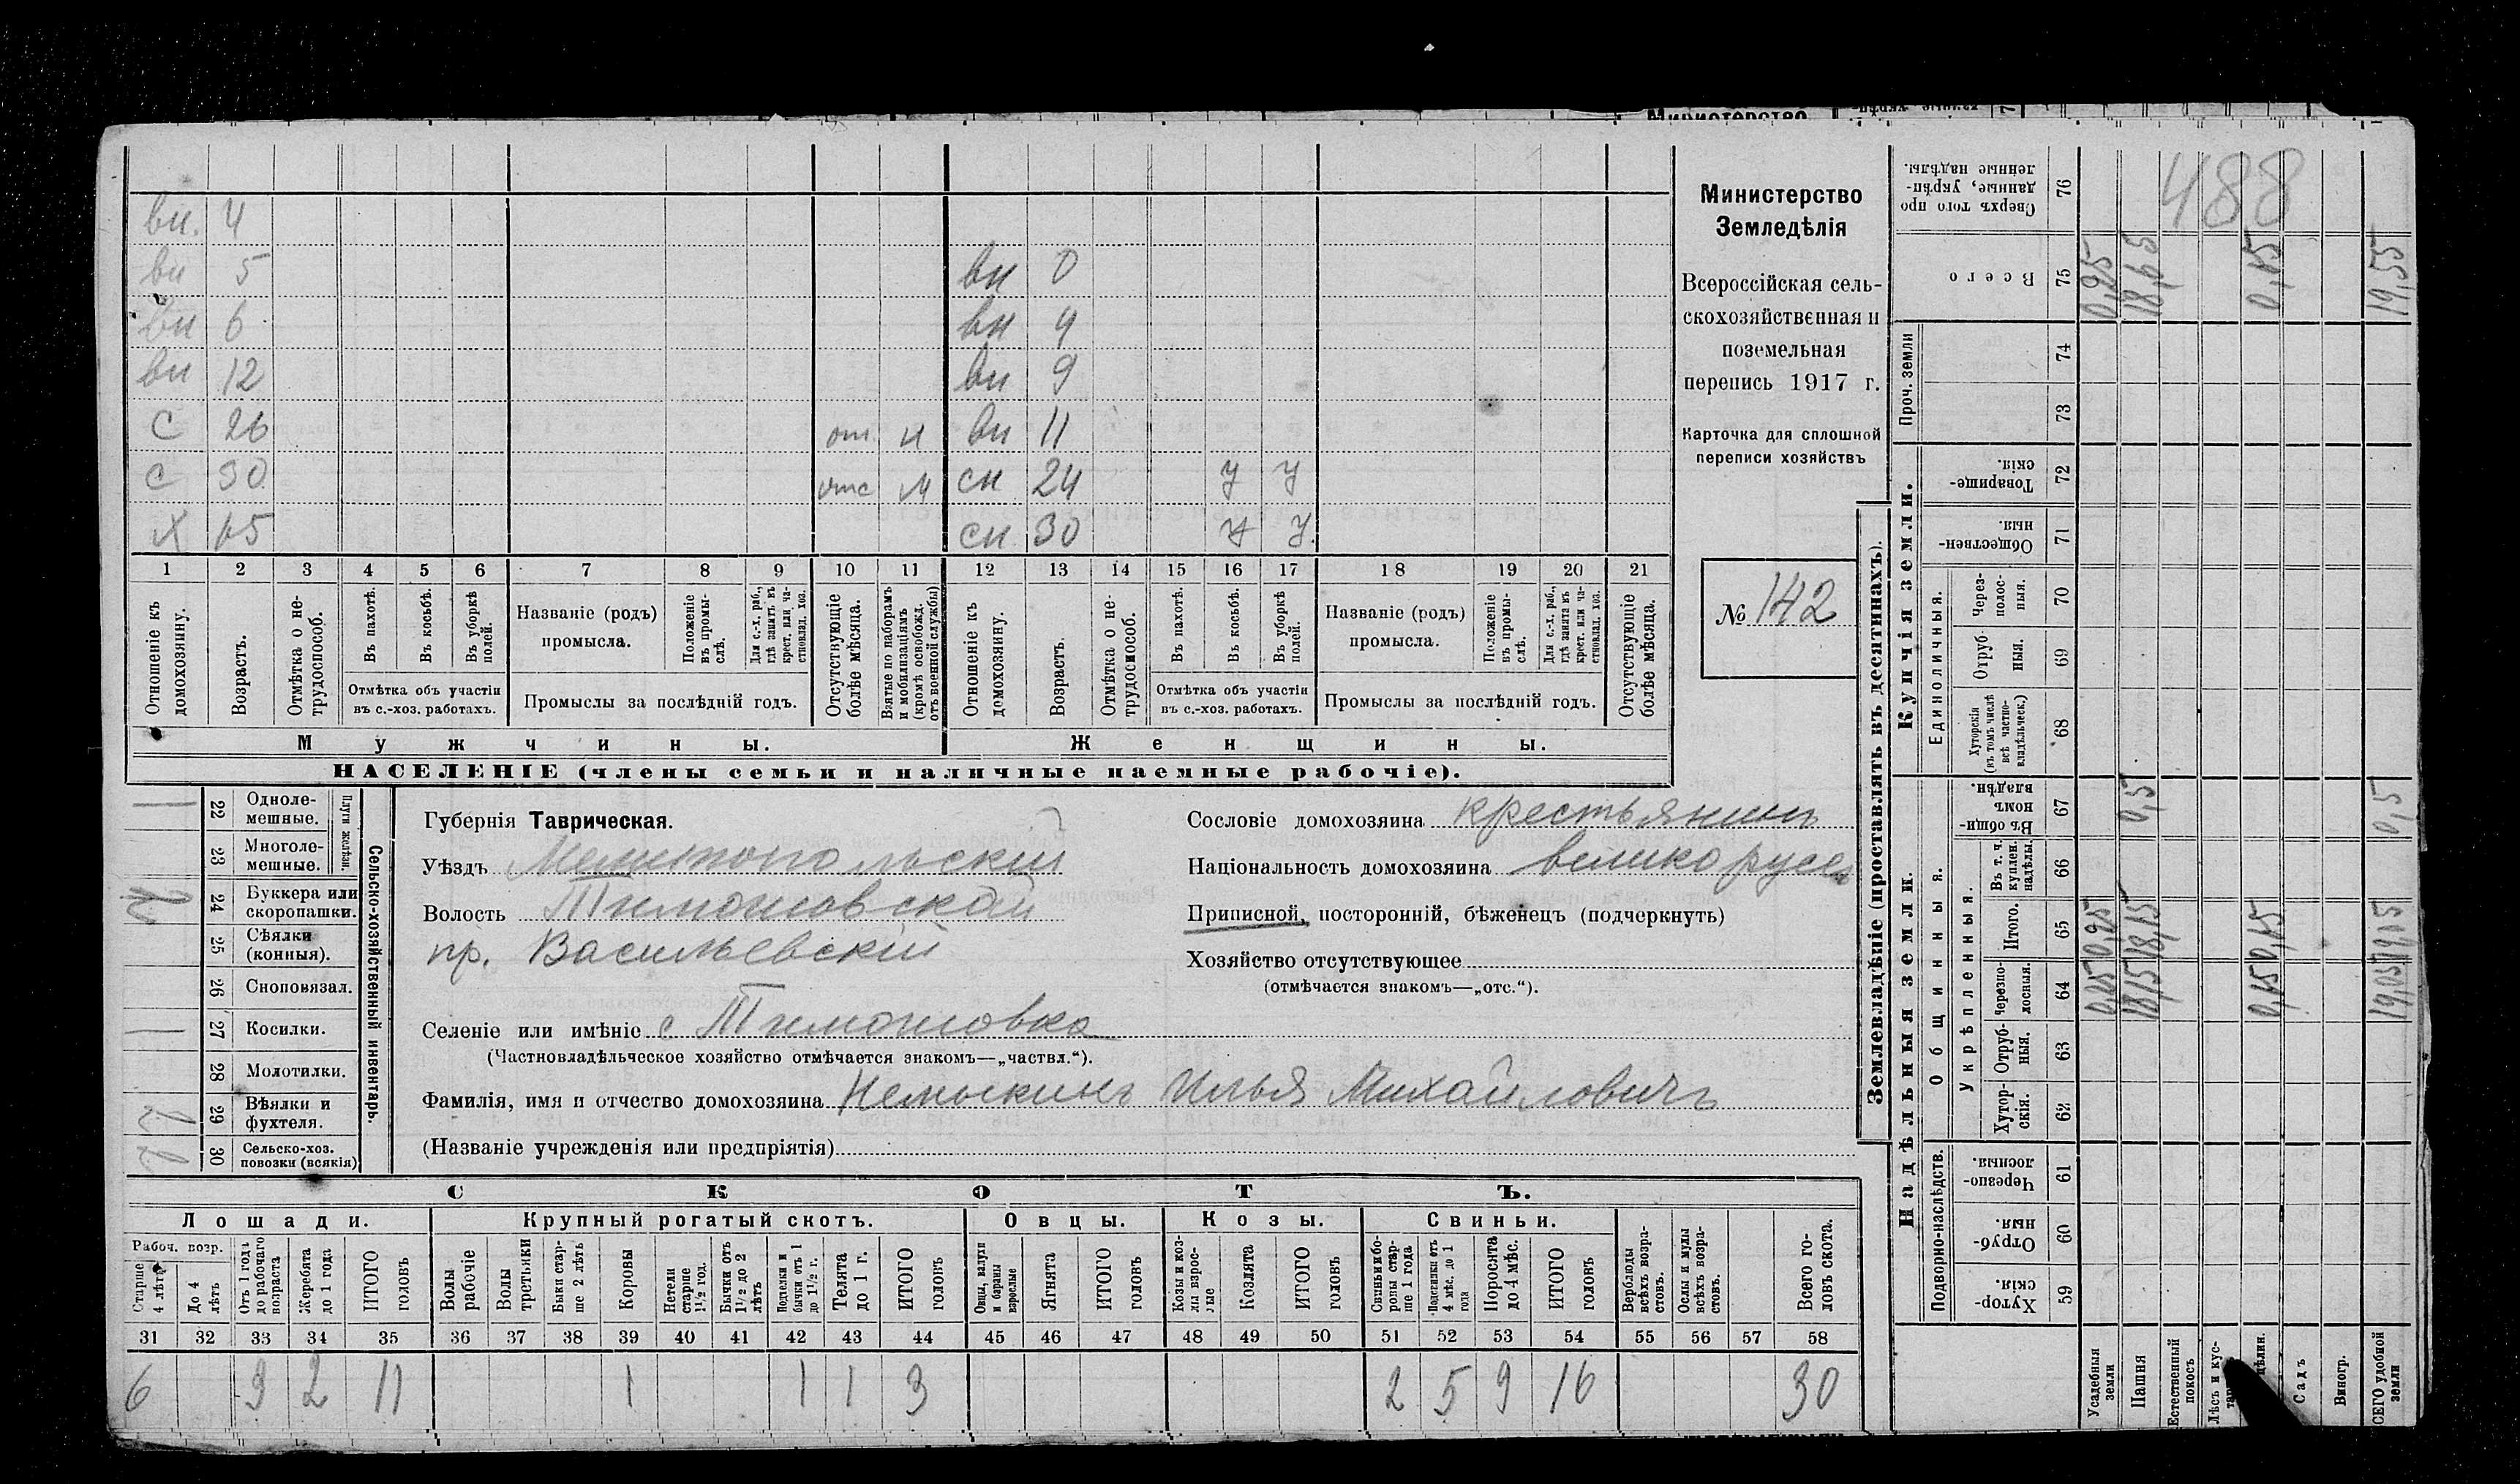 Министерство
488
вн. 4
вн 5 вн 0
вн 6 вн 4
вн 12 вн 9
С 26 от. м вн 11
С 30 отс м сн 24 у у
Х 65 сн 30 у у
1 2 3 4 5 6 7 8 9 10 11 12 13 14 15 16 17 18 19 20 21
Отношеніе къ домохозяину.
Возрастъ.
Отмѣтка о не-трудоспособ.
Въ пахотѣ.
Въ косьбѣ.
Въ уборкѣ полей.
Отмѣтка объ участіи въ с.-хоз. работахъ.
Названіе (родъ) промысла.
Положеніе въ промы-слѣ.
Для с.-х. раб., гдѣ занятъ въ крест. или ча-стновлад. хоз.
Промыслы за послѣдній годъ.
Отсутствующіе болѣе мѣсяца.
Взятые по наборамъ и мобилизаціямъ (кромѣ освобожд. отъ военной службы)
Отношеніе къ домохозяину.
Возрастъ.
Отмѣтка о не-трудоспособ.
Въ пахотѣ.
Въ косьбѣ.
Въ уборкѣ полей.
Отмѣтка объ участіи въ с.-хоз. работахъ.
Названіе (родъ) промысла.
Положеніе въ промы-слѣ.
Для с.-х. раб., гдѣ занята въ крест. или ча-стновлад. хоз.
Промыслы за послѣдній годъ.
Отсутствующіе болѣе мѣсяца.
Мужчины.
Женщины.
НАСЕЛЕНІЕ (члены семьи и наличные наемные рабочіе).
Министерство
Земледѣлія
Всероссійская сель-
скохозяйственная и
поземельная
перепись 1917 г.
Карточка для сплошной
переписи хозяйствъ
№ 142
22 Одноле-мешные.
23 Многоле-мешные.
Плуги желѣзн.
24 Буккера или скоропашки.
25 Сѣялки (конныя).
26 Сноповязал.
27 Косилки.
28 Молотилки.
29 Вѣялки и фухтеля.
30 Сельско-хоз. повозки (всякія)
Сельско-хозяйственный инвентарь.
Губернія Таврическая.
Уѣздъ Мелитопольскій
Волость Тимошовской
пр. Васильевскій
Селеніе или имѣніе с Тимошовка
(Частновладѣльческое хозяйство отмѣчается знакомъ—„частвл.“).
Фамилія, имя и отчество домохозяина Немыкинъ Илья Михайловичъ
(Названіе учрежденія или предпріятія)
Сословіе домохозяина крестьянинъ
Національность домохозяина великорусс
Приписной, посторонній, бѣженецъ (подчеркнуть)
Хозяйство отсутствующее
(отмѣчается знакомъ—„отс.“).
СКОТЪ.
Лошади. Крупный рогатый скотъ. Овцы. Козы. Свиньи.
Рабоч. возр.
Старше 4 лѣтъ
До 4 лѣтъ
Отъ 1 года до рабочаго возраста
Жеребята до 1 года
ИТОГО головъ
Волы рабочіе
Волы третьяки
Быки стар-ше 2 лѣтъ
Коровы
Нетели старше 1½ год.
Бычки отъ 1½ до 2 лѣтъ
Подтелки и бычки отъ 1 до 1½ г.
Телята до 1 г.
ИТОГО головъ
Овцы, валухи и бараны взрослые
Ягнята
ИТОГО головъ
Козы и коз-лы взрос-лые
Козлята
ИТОГО головъ
Свиньи и бо-ровы стар-ше 1 года
Подсвинки отъ 4 мѣс. до 1 года
Поросята до 4 мѣс.
ИТОГО головъ
Верблюды всѣхъ возра-стовъ.
Ослы и мулы всѣхъ возра-стовъ.
Всего го-ловъ скота.
31 32 33 34 35 36 37 38 39 40 41 42 43 44 45 46 47 48 49 50 51 52 53 54 55 56 57 58
6 3 2 11 1 1 1 3 2 5 9 16 30
Землевладѣніе (проставлять въ десятинахъ).
Надѣльныя земли.
Подворно-наслѣдств.
Хутор-скія. 59
Отруб-ныя 60
Черезпо-лосныя. 61
Общинныя.
Укрѣпленныя.
Хутор-скія. 62
Отруб-ныя. 63
Черезпо-лосныя. 64
Итого. 65
Въ т. ч. куплен. надѣлы. 66
Въ общи-номъ владѣн. 67
Купчія земли.
Единоличныя.
Хуторскія (въ томъ числѣ всѣ частно-владѣльческ.) 68
Отруб-ныя. 69
Через-полос-ныя. 70
Обществен-ныя. 71
Товарище-скія. 72
Проч. земли 73 74
Всего 75
Сверхъ того про-данные, укрѣп-ленные надѣлы. 76
Усадебныя земли 0,25 0,25 0,25
Пашня 18,15 18,15 0,5 18,65
Естественный покосъ
Лѣсъ и кус-
0,65 0,65 0,65
Садъ
Виногр.
СЕГО удобной земли 19,05 19,05 0,5 19,55